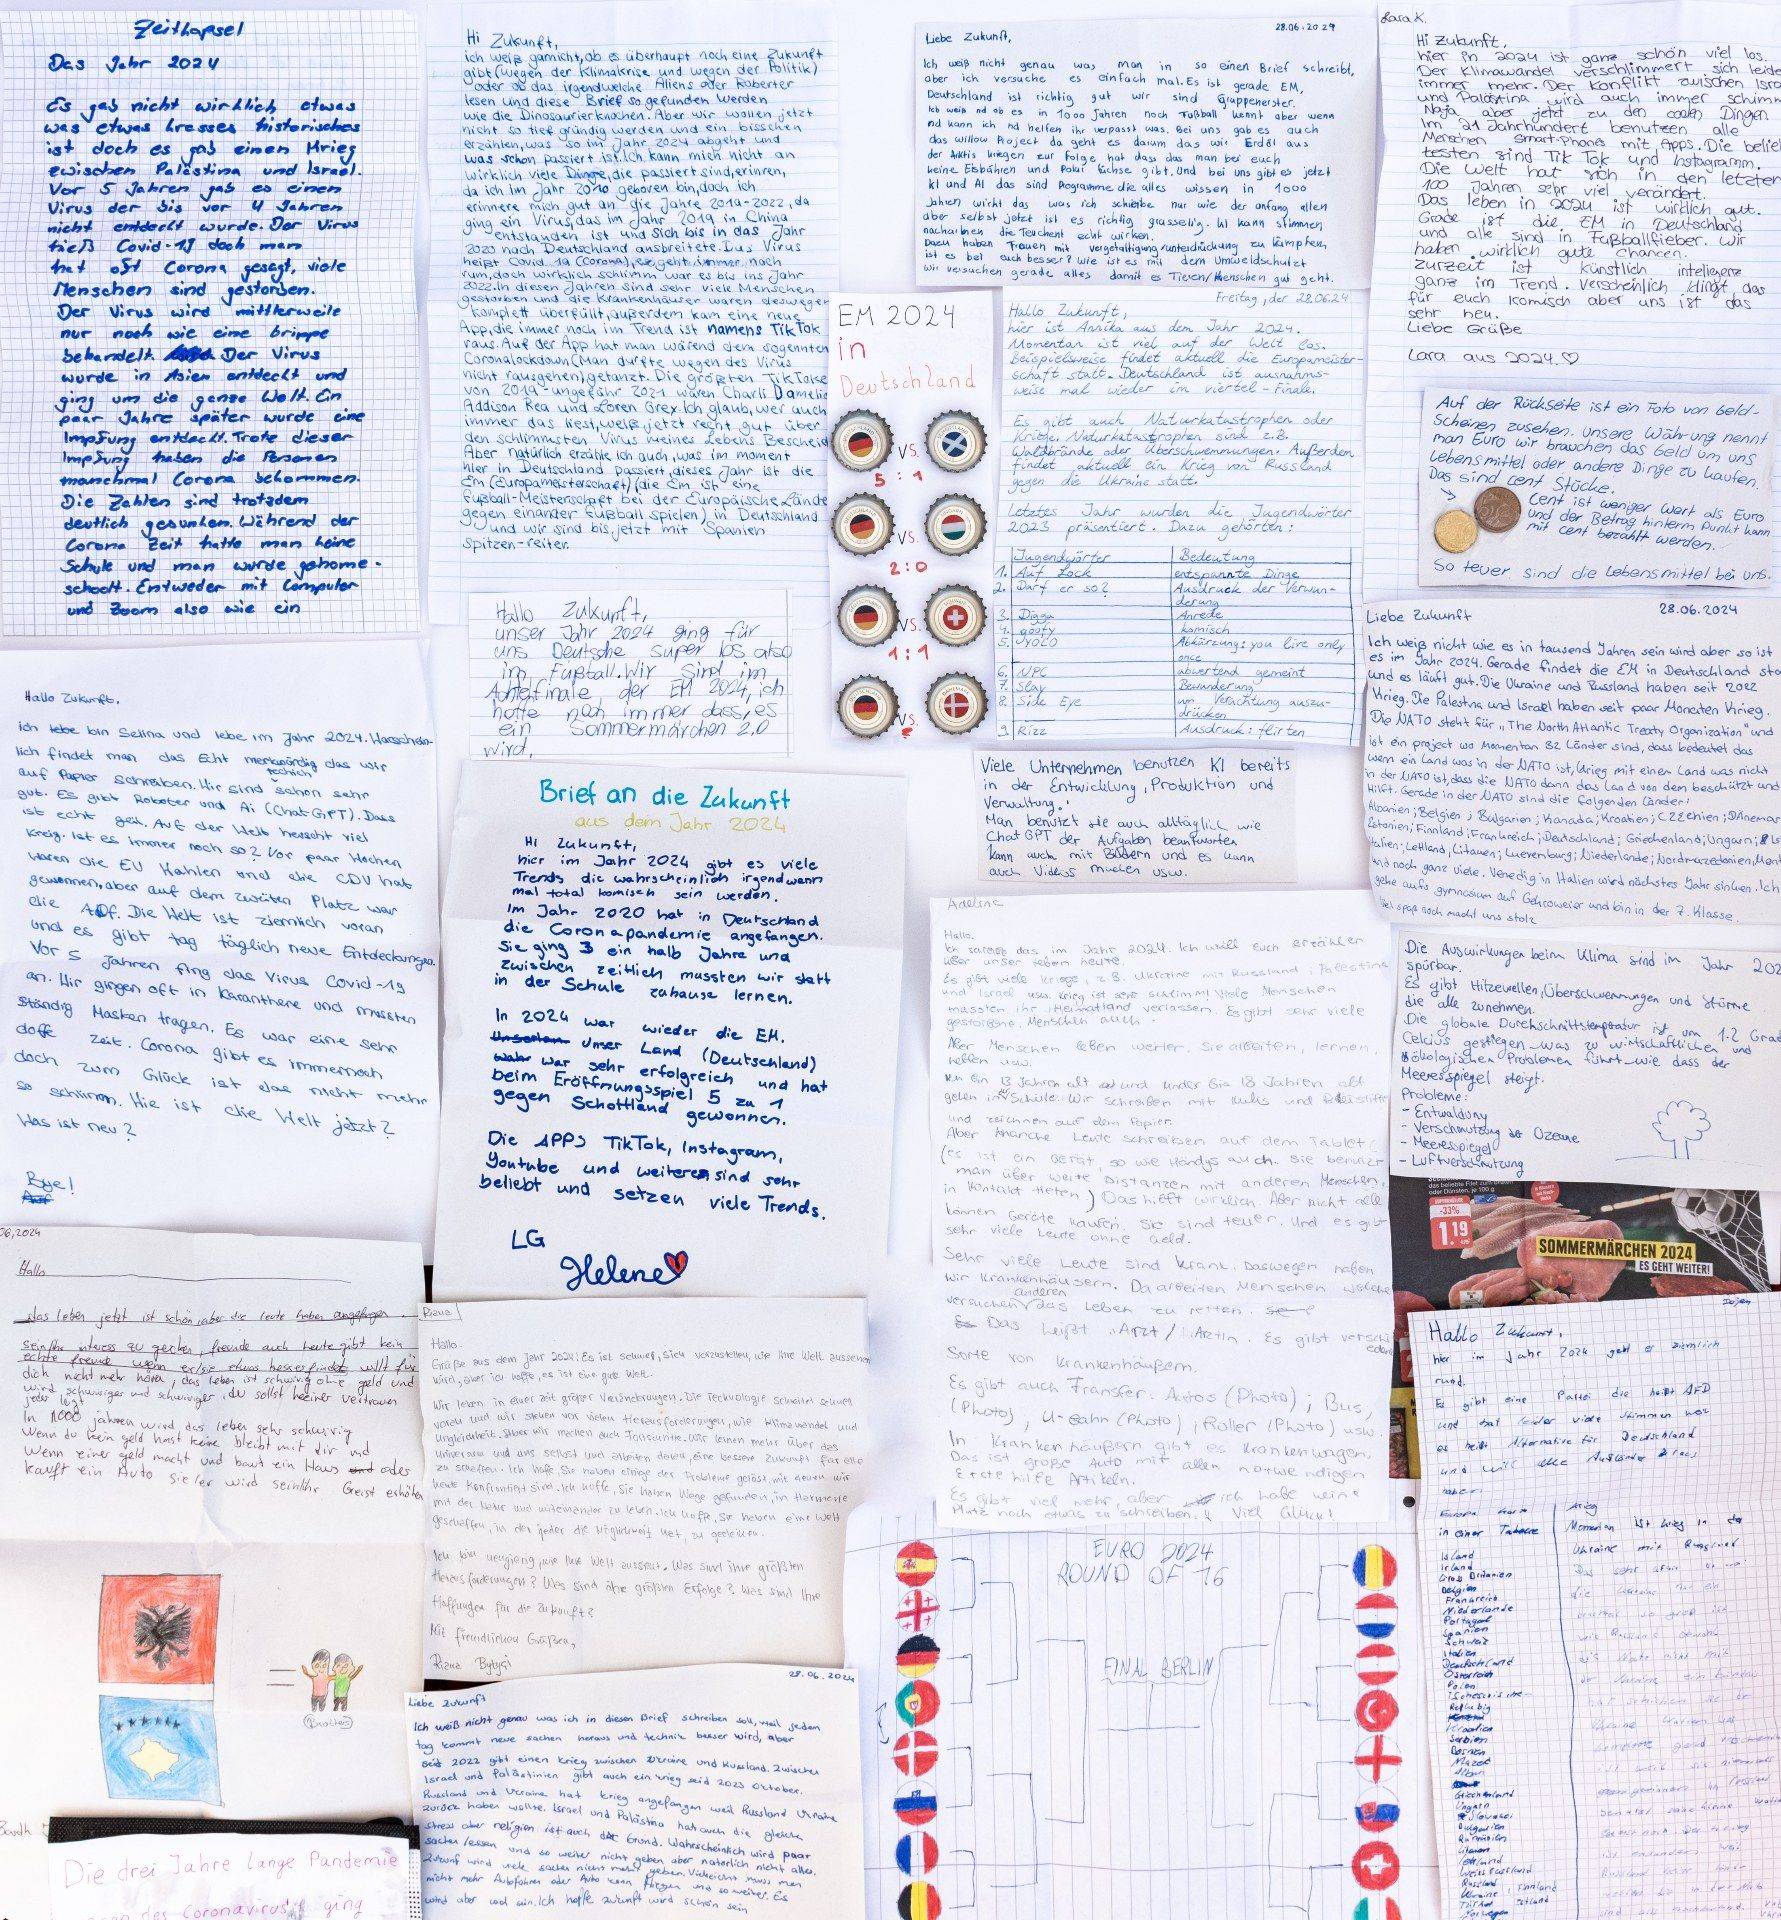 Zeitkapsel
Das Jahr 2024
Es gab nicht wirklich etwas
was etwas krasses historisches
ist doch es gab einen Krieg
zwischen Palästina und Israel.
Vor 5 Jahren gab es einen
Virus der bis vor 4 Jahren
nicht entdeckt wurde. Der Virus
hieß Covid-19 doch man
hat oft Corona gesagt, viele
Menschen sind gestorben.
Der Virus wird mittlerweile
nur noch wie eine Grippe
behandelt. Der Virus
wurde in Asien entdeckt und
ging um die ganze Welt. Ein
paar Jahre später wurde eine
Impfung entdeckt. Trotz dieser
Impfung haben die Personen
manchmal Corona bekommen.
Die Zahlen sind trotzdem
deutlich gesunken. Während der
Corona Zeit hatte man keine
Schule und man wurde gehome-
schoolt. Entweder mit Computer
und Zoom also wie ein
Hi Zukunft,
ich weiß garnicht, ob es überhaupt noch eine Zukunft
gibt (wegen der Klimakrise und wegen der Politik)
oder ob das irgendwelche Aliens oder Roberter
lesen und diese Brief so gefunden werden
wie die Dinosaurierknochen. Aber wir wollen jetzt
nicht so tief gründig werden und ein bisschen
erzählen, was so im Jahr 2024 abgeht und
was schon passiert ist. Ich kann mich nicht an
wirklich viele Dinge, die passiert sind, erinren,
da ich im Jahr 2010 geboren bin, doch ich
erinnere mich gut an die Jahre 2019-2022, da
ging ein Virus, das im Jahr 2019 in China
entstanden ist und sich bis in das Jahr
2023 nach Deutschland ausbreitete. Das Virus
heißt Covid 19 (Corona), es geht immer noch
rum, doch wirklich schlimm war es bis ins Jahr
2022. In diesen Jahren sind sehr viele Menschen
gestorben und die Krankenhäuser waren deswegen
komplett überfüllt, außerdem kam eine neue
App, die immer noch im Trend ist namens TikTok
raus. Auf der App hat man wärend dem sogennten
Coronalockdown (Man durfte wegen des Virus
nicht rausgehen) getanzt. Die größten TikToker
von 2019-ungefähr 2021 waren Charli Damelie
Addison Rea und Loren Grey. Ich glaub, wer auch
immer das liest, weiß jetzt recht gut über
den schlimmsten Virus meines Lebens Bescheid
Aber natürlich erzähle ich auch, was im moment
hier in Deutschland passiert, dieses Jahr ist die
Em (Europameisterschaft) (die Em ist eine
Fußball-Meisterschaft bei der Europäische Lände
gegen einander Fußball spielen) in Deutschland
und wir sind bis jetzt mit Spanien
spitzen-reiter.
28.06.2024
Liebe Zukunft,
Ich weiß nicht genau was man in so einen Brief schreibt,
aber ich versuche es einfach mal. Es ist gerade EM,
Deutschland ist richtig gut wir sind Grappenerster.
Ich weiß nd ob es in 1000 Jahren noch Fußball kennt aber wenn
nd kann ich nd helfen ihr verpasst was. Bei uns gab es auch
das willow Project da geht es darum das wir Erdöl aus
der Arktis kriegen zur Folge hat dass das man bei euch
keine Eisbähren und Polar füchse gibt. Und bei uns gibt es jetzt
KI und AI das sind Programme die alles wissen in 1000
Jahren wirkt das was ich schreibe nur wie der anfang allen
aber selbst jetzt ist es richtig grasselig. KI kann stimmen
nachahmen die Teuchent echt wirken.
Dazu haben Frauen mit vergewaltigung/unterdrückung zu kämpfen,
ist es bei euch besser? wie ist es mit dem Umweldschutzt
Wir versuchen gerade alles damit es Tieren/Menschen gut geht.
Lara K.
Hi Zukunft,
hier in 2024 ist ganz schön viel los.
Der Klimawandel verschlimmert sich leide
immer mehr. Der Konflikt zwischen Isra
und Palästina wird auch immer schimm
Naja aber jetzt zu den Dingen
Im 21 Jahrhundert benutzen alle
Menschen Smart-Phones mit Apps. Die belieb
testen sind Tik Tok und Instagramm.
Die Welt hat sich in den letzten
100 Jahren sehr viel verändert.
Das leben in 2024 ist wirklich gut.
Grade ist die EM in Deutschland
und alle sind in Fußballfieber. Wir
haben wirklich gute chancen.
Zurzeit ist künstlich inteligenz
ganz im Trend. Verscheinlich klingt das
für euch komisch aber uns ist das
sehr neu.
Liebe Grüße
Lara aus 2024.♡
EM 2024
in
Deutschland
VS.
5 : 1
VS.
2:0
VS.
1:1
VS.
?
Freitag, der 28.06.24
Hallo Zukunft,
hier ist Annika aus dem Jahr 2024.
Momentan ist viel auf der Welt los.
Beispielsweise findet aktuell die Europameister-
schaft statt. Deutschland ist ausnahms-
weise mal wieder im viertel-Finale.
Es gibt auch Naturkatastrophen oder
Kriege. Naturkatastrophen sind z.B.
Waldbrände oder Überschwemmungen. Außerden
findet aktuell ein Krieg von Russland
gegen die Ukraine statt.
Letztes Jahr wurden die Jugendwörter
2023 präsentiert. Dazu gehörten:
Jugendwörter Bedeutung
1. Auf Lock entspannte Dinge
2. Darf er so? Ausdruck der Verwun-
derung
3. Digga Anrede
4. goofy komisch
5. YOLO Abkürzung: you live only
once
6. NPC abwertend gemeint
7. Slay Bewunderung
8. Side Eye um Verachtung auszu-
drücken
9. Rizz Ausdruck: flirten
Auf der Rückseite ist ein Foto von Geld-
Scheinen zusehen. Unsere Währung nennt
man Euro wir brauchen das Geld um uns
Lebensmittel oder andere Dinge zu kaufen.
Das sind cent Stücke.
Cent ist weniger Wert als Euro
und der Betrag hinterm Punkt kann
mit cent bezahlt werden.
So teuer sind die Lebensmittel bei uns.
Hallo Zukunft,
unser Jahr 2024 ging für
uns Deutsche super los also
im Fußball. Wir sind im
Achtelfinale der EM 2024, ich
hoffe noch immer dass, es
ein Sommermärchen 2.0
wird.
28.06.2024
Liebe Zukunft
Ich weiß nicht wie es in tausend Jahren sein wird aber so ist
es im Jahr 2024. Gerade findet die EM in Deutschland sta
und es läuft gut. Die Ukraine und Russland haben seit 2022
Krieg. Die Palestna und Israel haben seit paar Monaten Krieg.
Die NATO steht für „The North Atlantic Treaty Organization" und
ist ein project wo Momentan 32 Länder sind, dass bedeutet das
wenn ein Land was in der NATO ist, Krieg mit einen Land was nicht
in der NATO ist, dass die NATO dann das Land von dem beschützt und
Hilft. Gerade in der NATO sind die folgenden Länder:
Albanien; Belgien; Bulgarien; Kanada; Kroatien; Czechien; Dänemar
Estonien; Finnland; Frankreich; Deutschland; Griechenland; Ungarn;
Italien; Lettland, Litauen; Luxenburg; Niederlande; Nordmazedonien; Mont
und noch ganz viele. Venedig in Italien wird nächstes Jahr sinken. Ich
gehe aufs gymnasium auf und bin in der 7. Klasse.
Viel spaß noch macht uns stolz
Hallo Zukunft,
ich lebe bin Selina und lebe im Jahr 2024. Warschein-
lich findet man das Echt merkwürdig das wir
auf Papier schreiben. Hir sind techich schon sehr
gut. Es gibt Roboter und Ai (Chat GPT). Dass
ist echt geil. Auf der Welt herscht viel
Kreig. Ist es immer noch so? Vor paar Wochen
waren die EU Wahlen und die CDU hat
gewonnen, aber auf dem zweiten Platz war
die AfD. Die Welt ist ziemlich voran
und es gibt tag täglich neue Entdeckungen
Vor 5 Jahren fing das Virus Covid-19
an. Wir gingen oft in Karanthene und mussten
ständig Masken tragen. Es war eine sehr
doffe zeit. Corona gibt es immernoch
doch zum Glück ist das nicht mehr
so schlimm. Wie ist die Welt jetzt?
Was ist neu?
Bye!
Brief an die Zukunft
aus dem Jahr 2024
Hi Zukunft,
hier im Jahr 2024 gibt es viele
Trends die wahrscheinlich irgendwann
mal total komisch sein werden.
Im Jahr 2020 hat in Deutschland
die Coronapandemie angefangen.
Sie ging 3 ein halb Jahre und
zwischen zeitlich mussten wir statt
in der Schule zuhause lernen.
In 2024 war wieder die EM.
Unser Land (Deutschland)
war sehr erfolgreich und hat
beim Eröffnungsspiel 5 zu 1
gegen Schottland gewonnen.
Die APPS TikTok, Instagram,
Youtube und weitere sind sehr
beliebt und setzen viele Trends.
LG
Helene
Viele Unternehmen benutzen KI bereits
in der Entwicklung, Produktion und
Verwaltung.
Man benutzt sie auch alltäglich wie
ChatGPT der Aufgaben beantworten
kann auch mit Bildern und es kann
auch Videos machen usw.
Adelina
Hallo.
das im Jahr 2024. Ich will Euch erzählen
über unser Leben heute.
Es gibt viele Kriege, z.B. Ukraine mit Russland, Palestina
und Israel usw. Krieg ist sehr schlimm! Viele Menschen
mussten ihr Heimatland verlassen. Es gibt sehr viele
gestorbene Menschen auch.
Aber Menschen leben weiter, Sie arbeiten, lernen,
helfen usw.
Ich bin 13 Jahren alt und Kinder bis 18 Jahren alt
gehen in Schule. Wir schreiben mit Kulis und Bleistifte
und zeichnen auf dem Papier.
Aber manche Leute schreiben auf dem Tablet
(es ist ein Gerät, so wie Handys auch. Sie benutzt
man über weite Distanzen mit anderen Menschen,
in Kontakt treten) Das hilft wirklich. Aber nicht alle
können Geräte kaufen. Sie sind teuer. Und es gib
sehr viele Leute ohne Geld.
Sehr viele Leute sind krank. Deswegen haben
wir Krankenhäusern. Da arbeiten Menschen welche
versuchen anderen das Leben zu retten.
Das heißt „Arzt/Ärztin. Es gibt versch
Sorte von Krankenhäusern.
Es gibt auch Transfer. Autos (Photo); Bus,
(Photo), U-Bahn (Photo), Roller (Photo) usw.
In Krankenhäusern gibt es Krankenwagen.
Das ist große Auto mit allen notwendigen
Erste hilfe Artikeln.
Es gibt viel mehr, aber ich habe keine
Platz noch etwas zu schreiben. Viel Glück!
Die Auswirkungen beim Klima sind im Jahr 202
spürbar.
Es gibt Hitzewellen, Überschwemmungen und Stürme
die alle zunehmen.
Die globale Durchschnittstemperatur ist um 1.2 Grad
Celcius gestiegen was zu wirtschaftlichen und
ökologischen Problemen führt wie dass der
Meeresspiegel steigt.
Probleme:
- Entwaldung
- Verschmutzung der Ozeane
- Meeresspiegel
- Luftverschmutzung
-33%
1.19
SOMMERMÄRCHEN 2024
ES GEHT WEITER!
06.2024
Hallo
das leben jetzt ist schön, aber die leute haben angefangen
sein/ihr interess zu gecken, freunde auch heute gibt kein
echte freunde wenn er/sie etwas besser findet willt für
dich nicht mehr hören, das leben ist schwirig ohne geld und
wird schwiriger und schwiriger, du sollst keiner vertrauen
jeder lügt
In 1000 jahren wird das leben sehr schwirig
Wenn du kein geld hast keine bleibt mit dir und
Wenn einer geld macht und baut ein Haus oder
kauft ein Auto sie/er wird sein/ihr Geist erhöhen
(Brothers)
Bardh
Die drei Jahre lange Pandemie
des Coronavirus ging
Riena
Hallo.
Grüße aus dem Jahr 2024! Es ist schwer, sich vorzustellen, wie Ihre Welt aussehen
wird, aber ich hoffe, es ist eine gute Welt.
Wir leben in einer zeit großer Veränderungen. Die Technologie schreitet schnell
voran und wir stehen vor vielen Herausforderungen, wie Klimawandel und
Ungleichheit. Aber wir machen auch Fortschritte. Wir lernen mehr über das
Universum und uns selbst und arbeiten daran, eine bessere Zukunft für alle
zu schaffen. Ich hoffe, Sie haben einige der Probleme gelöst, mit denen wir
heute konfrontiert sind. Ich hoffe, Sie haben Wege gefunden, in Harmonie
mit der Natur und miteinander zu leben. Ich hoffe, Sie haben eine Welt
geschaffen, in der jeder die Möglichkeit hat, zu gedeihen.
Ich bin neugierig, wie Ihre Welt aussieht. Was sind ihre größten
Herausforderungen? Was sind ihre größten Erfolge? Was sind Ihre
Hoffnungen für die Zukunft?
Mit freundlichen Grüßen,
28.06.2024
Liebe Zukunft
Ich weiß nicht genau was ich in diesen Brief schreiben soll, weil jeden
tag kommt neue sachen heraus und technik besser wird, aber
seit 2022 gibt einen Krieg zwischen Ukraine und Russland. Zwischen
Israel und Palästinien gibt auch ein krieg seid 2023 Oktober.
Russland und Ukraine hat krieg angefangen weil Russland Ukraine
zurück haben wollte. Israel und Palästina hat auch die gleiche
stress aber religion ist auch der Grund. Wahrscheinlich wird paar
sachen lessen und so weiter nicht geben aber natürlich nicht alles.
Zukunf wird viele sachen nicht mehr geben. Vielleicht muss man
nicht mehr Autofahren oder Auto kann fliegen und so weiter. Es
wird aber cool sein. Ich hoffe zukunft wird schön sein
EURO 2024
ROUND OF 16
FINAL BERLIN
Hallo Zukunft,
hier im Jahr 2024 geht es ziemlich
rund.
Es gibt eine Partei die heißt AFD
und hat leider viele Stimmen
es heißt Alternative für Deutschland
und will alle Ausländer raus
haben.
in einer Tabelle
Island
Irland
Gross Britanien
Belgien
Frankreich
Niederlande
Portugal
Spanien
Schweiz
Italien
Deutschland
Österreich
Polen
Kroatien
Serbien
Bosnien
Griechenland
Ungarn
Slowakei
Bulgarien
Rumänien
Litauen
Lettland
Weiss Russland
Russland
Ukraine Finnland
Türkei Estland
Norwegen
Krieg
Momentan ist krieg in der
Ukraine mit Russland